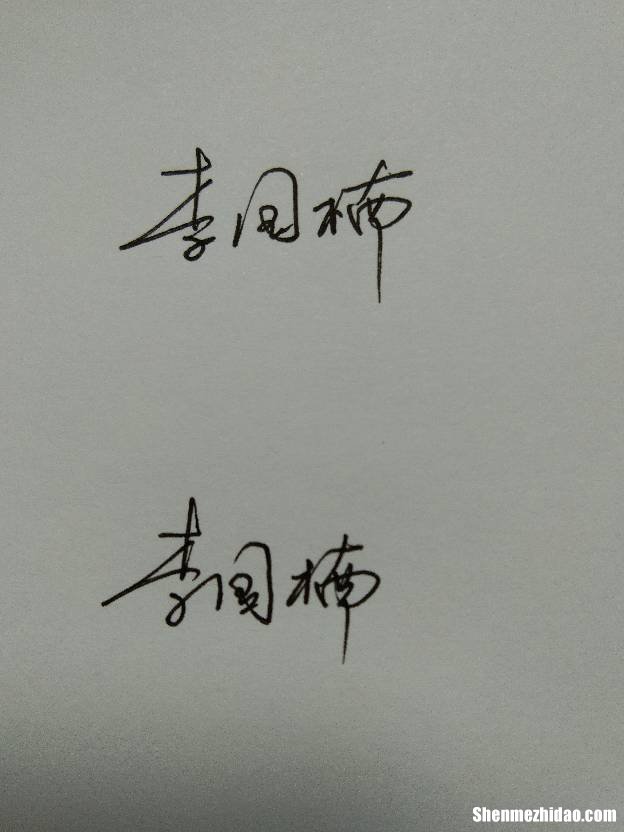 李国楠
李国楠
Shenmezhidao.com